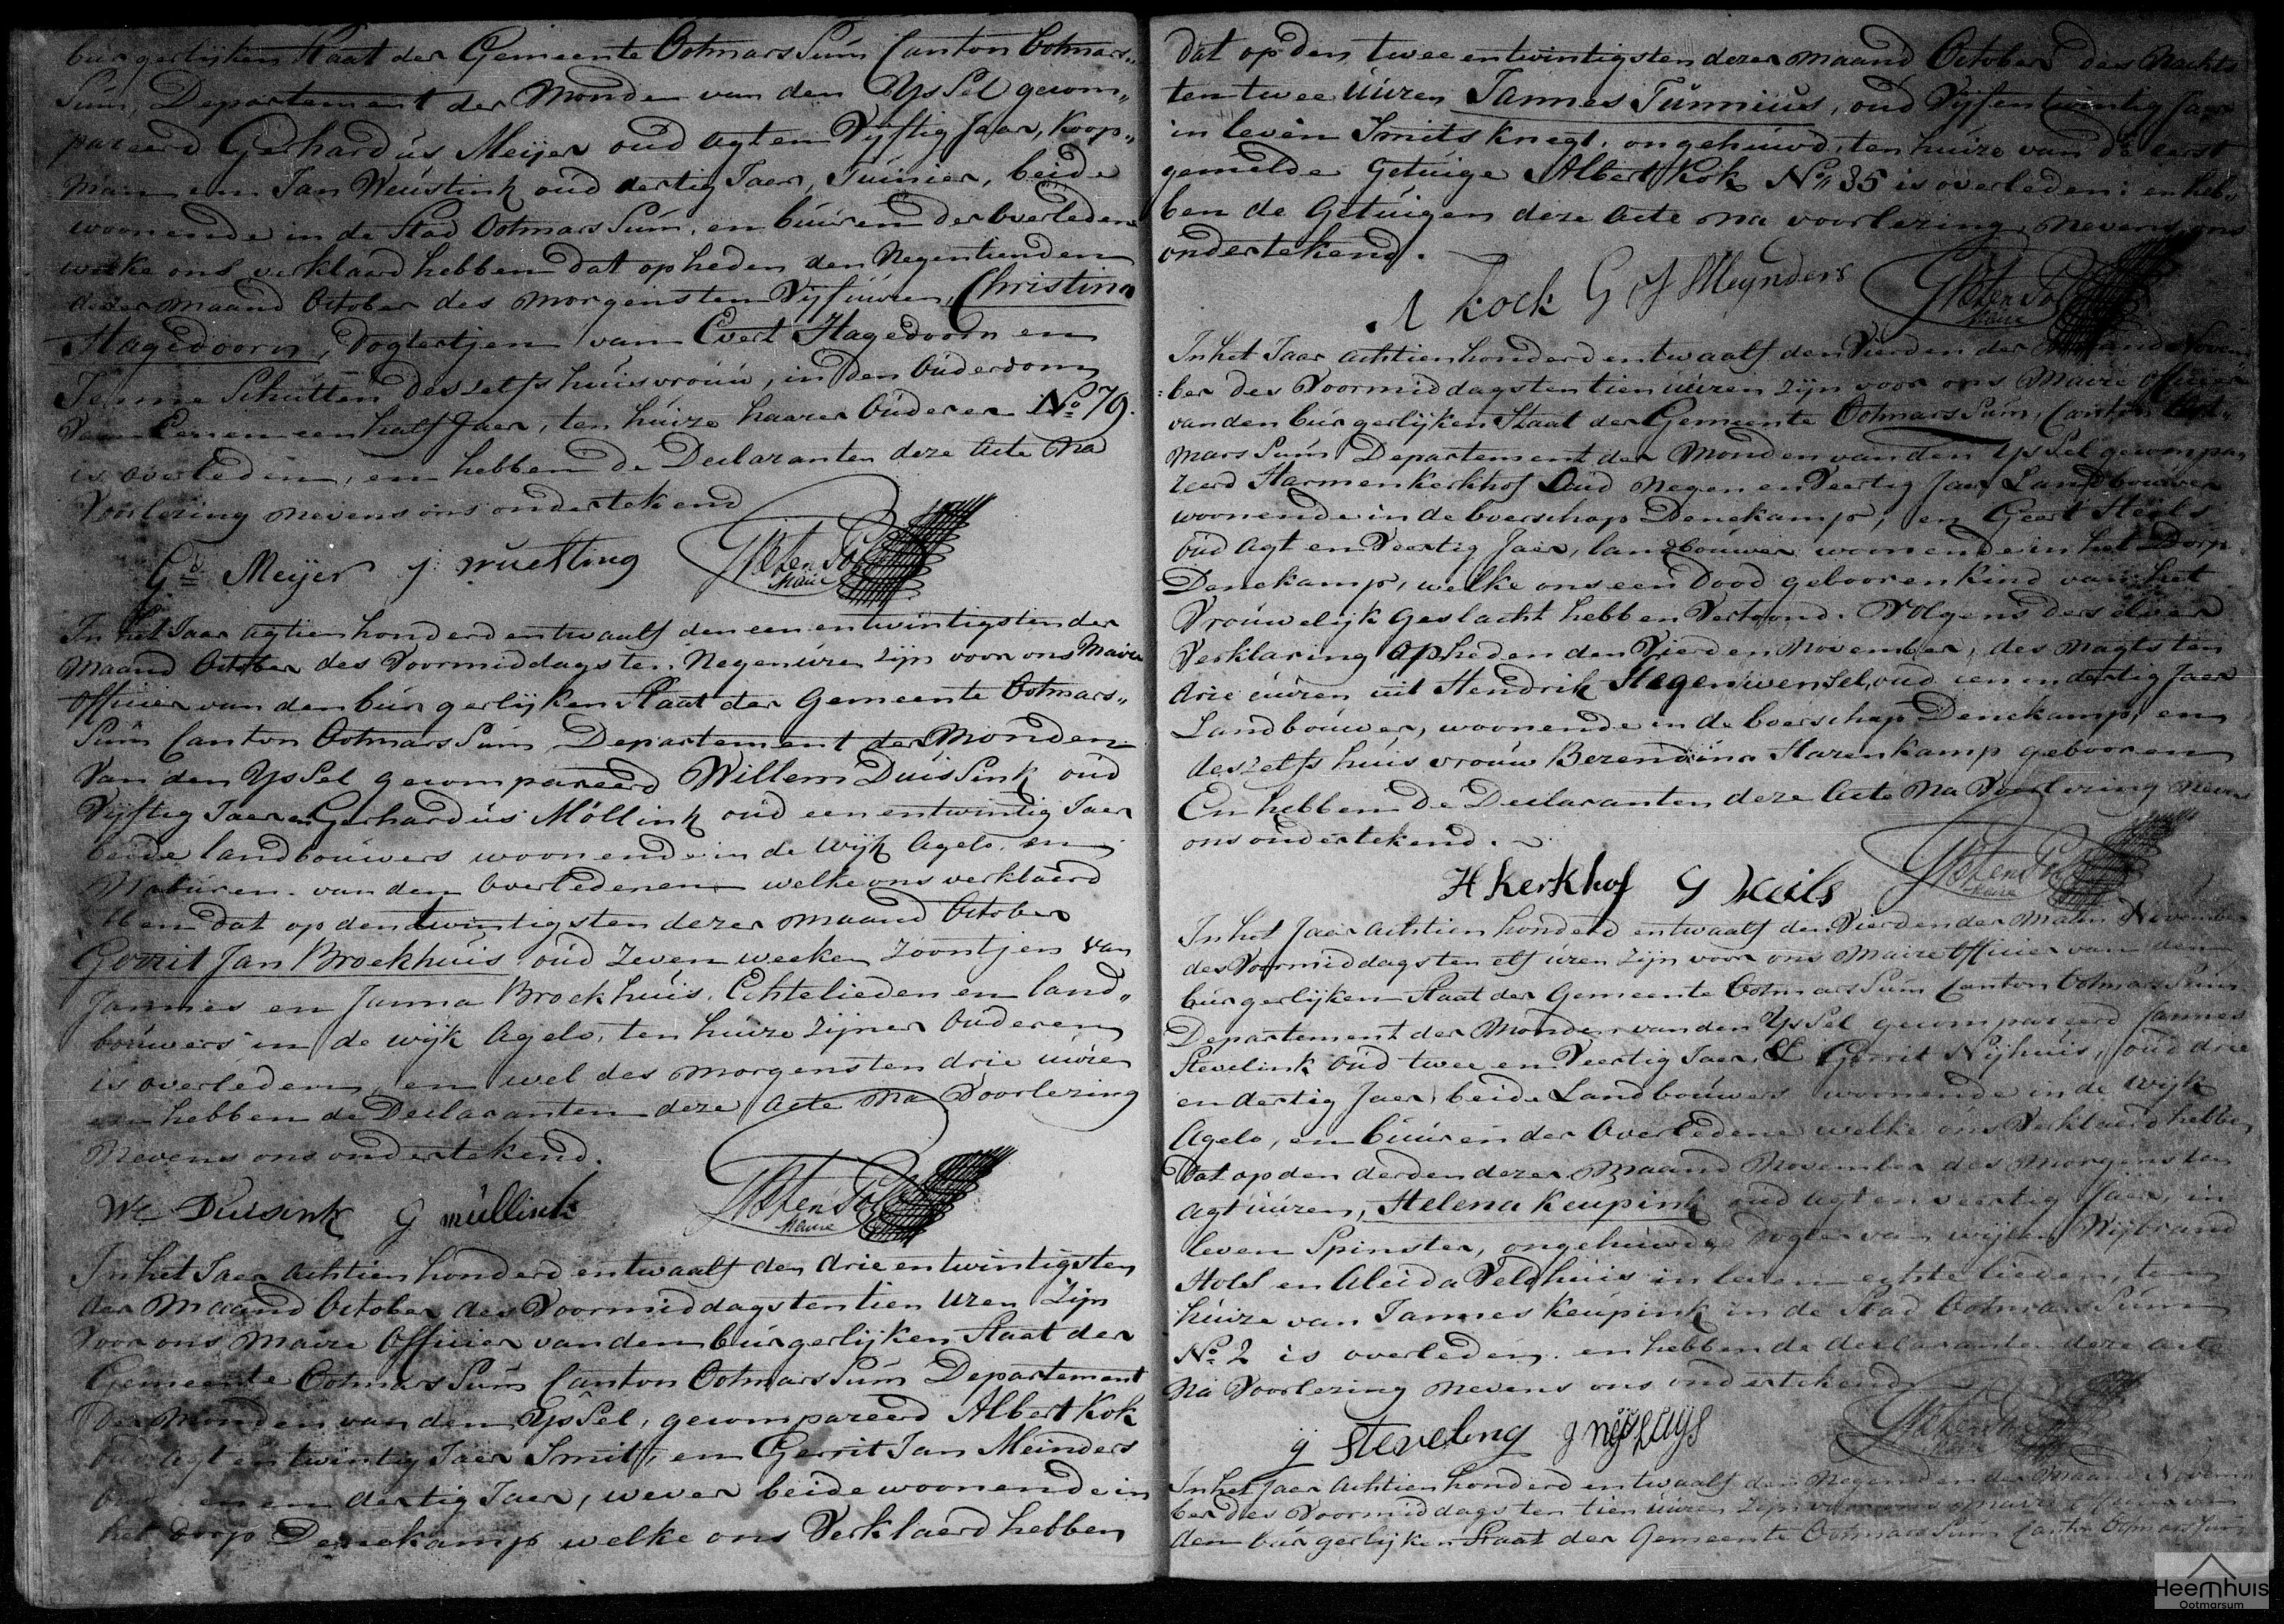 burgerlijken Staat der Gemeente OotmarsSum Canton Ootmars„
Sum, Departement der Monden van den YsSel gecom„
pareerd Gerhardus Meijer oud agt en Vijftig Jaar, Koop„
man en Jan Weustink oud dertig Jaer, Tuinier, beide
woonende in de Stad OotmarsSum, en buuren der Overledene
welke ons verklaard hebben dat op heden den Negentienden
dezer maand October des morgens ten Vijf uuren, Christina
Hagedoorn, Dogtertjen van Evert Hagedoorn en
Schutten deszelfs huisvrouw, in den Ouderdom
van Een en een half Jaer, ten huize haarer Ouderen No 79.
is overleden, en hebben de Declaranten deze Acte na
Voorlezing nevens ons ondertekend
Gd Meijer J wuesting GB ten Pol
Maire
In het Jaar agtienhonderd en twaalf den een en twintigsten der
Maand October des Voormiddags ten Negen uren zijn voor ons Maire
Officier van den burgerlijken Staat der Gemeente Ootmars„
Sum Canton OotmarsSum Departement der Monden
Van den YsSel gecompareerd Willem DuisSink oud
Vijftig Jaer en Gerhardus Möllink oud een en twintig Jaer
beide landbouwers woonende in de Wijk Agelo en
Naburen van den Overledenen welke ons verklaerd
hebben dat op den twintigsten dezer maand October
Gerrit Jan Broekhuis oud zeven weeken zoontjen van
Jannes en Janna Broekhuis, Echtelieden en land„
bouwers in de wijk Agelo, ten huize zijner Ouderen
is overleden, en wel des morgens ten drie uure
en hebben de Declaranten deze Acte na Voorlezing
Nevens ons ondertekend.
Wm Duisink G müllink GB ten Pol
Maire
In het Jaer Achtienhonderd en twaalf den drie en twintigsten
der Maand October des Voormiddags ten tien Uren Zijn
Voor ons Maire Officier van den burgerlijken Staat der
Gemeente OotmarsSum Canton OotmarsSum Departement
der Monden van den YsSel, gecompareerd Albert Kok
oud agt en twintig Jaer Smit, en Gerrit Jan Meinders
oud en dertig Jaer, wever beide woonende in
het dorp Denekamp welke ons Verklaerd hebben
dat op den twee en twintigsten dezer maand October des Nachts
ten twee Uuren Jannes Tünnius, oud Vijf en twintig Jaar
in leven Smits knegt, ongehuwd, ten huize van de eerst
gemelde Getuige Albert Kok No 35 is overleden: en heb„
ben de Getuigen deze Acte na voorlezing, nevens ons
ondertekend.
A Kock G J Meynders GB ten Pol
Maire
In het Jaar Achtienhonderd en twaalf den Vierden der Maand Novem
ber des Voormiddags ten tien uuren zijn voor ons Maire Officier
van den burgerlijken Staat der Gemeente OotmarsSum, Canton Oot„
marsSum Departement der Monden van den YsSel gecompa„
reerd Harmen Kerkhof Oud Negen en Veertig Jaer Landbouwer
woonende in de boerschap Denekamp, en Geert Heels
oud Agt en Veertig Jaer, landbouwer woonende in het Dorp
Denekamp, welke ons een Dood gebooren Kind van het
Vrouwelijk Geslacht hebben Vertoond. Volgens derselver
Verklaring op heden den Vierden November, des nagts ten
drie uuren uit Hendrik Stegenwensel, oud een en dertig Jaer
Landbouwer, woonende in de boerschap Denekamp, en
deszelfs huisvrouw Berendina Harenkamp gebooren
En hebben de Declaranten deze Acte na Voorlezing nevens
ons ondertekend.
H Kerkhof G heils GB ten Pol
Maire
In het Jaer Achtienhonderd en twaalf den Vierden der Maand November
des Voormiddags ten elf uren zijn voor ons Maire Officier van den
burgerlijken Staat der Gemeente OotmarsSum Canton OotmarsSum
Departement der Monden van den YsSel gecompareerd Jannes
Stevelink Oud twee en Veertig Jaer, & Gerrit Nijhuis, oud drie
en dertig Jaer beide Landbouwers woonende in de Wijk
Agelo, en buuren der Overledene welke ons Verklaerd hebben
Dat op den derden dezer Maand November des morgens ten
agt uuren, Helena Keupink oud agt en veertig Jaer, in
leven Spinster, ongehuwde Dogter van wijlen Wijbrand
Hols en Aleida Veldhuis in leven echtelieden, ten
huize van Jannes Keupink in de Stad OotmarsSum
No 2 is overleden. en hebben de declaranten deze acte
na Voorlezing nevens ons ondertekend
J Steveling GB ten Pol
Maire
In het Jaer Achtienhonderd en twaalf den Negenden der Maand Novem
ber des Voormiddags ten tien uuren zijn van
den burgerlijken Staat der Gemeente OotmarsSum Canton OotmarsSum
Heemhuis
Ootmarsum